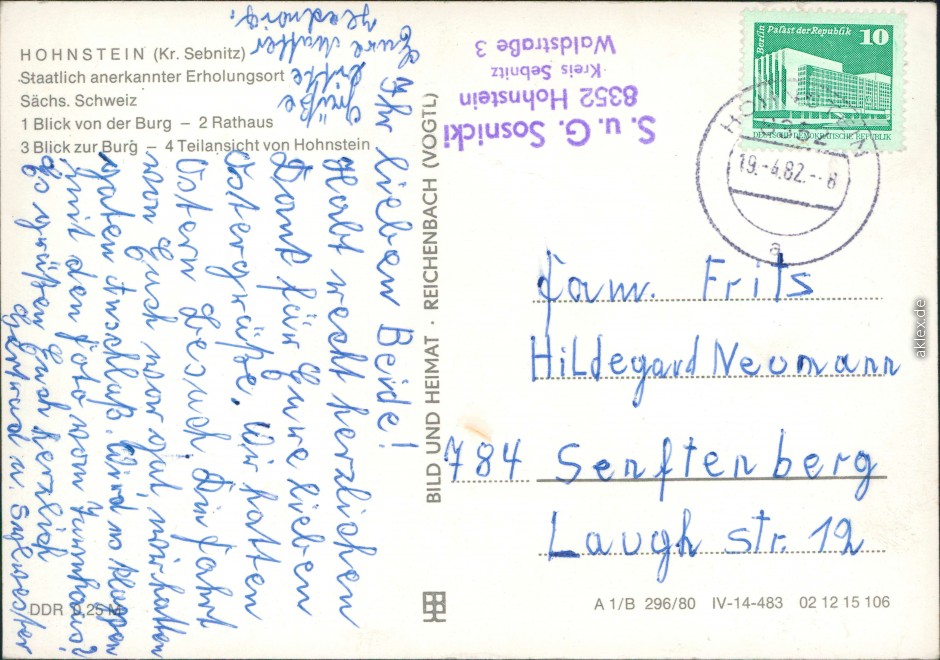 HOHNSTEIN (Kr. Sebnitz)
Staatlich anerkannter Erholungsort
Sächs. Schweiz
1 Blick von der Burg – 2 Rathaus
3 Blick zur Burg – 4 Teilansicht von Hohnstein
Ihr lieben Beide!
Habt recht herzlichen
Dank für Eure lieben
Ostergrüße. Wir hatten
Ostern Besuch. Die Fahrt
von Euch war gut, wir hatten
guten Anschluß. Wird es klappen
mit den Foto vom
Es grüßen Euch herzlich
Gertrud u. Sylvester
Grüße bitte
Eure Mutter
DDR 0,25 M
BILD UND HEIMAT · REICHENBACH (VOGTL)
S. u. G. Sosnicki
8352 Hohnstein
Kreis Sebnitz
Waldstraße 3
Berlin Palast der Republik 10
DEUTSCHE DEMOKRATISCHE REPUBLIK
HOHNSTEIN
8352
19.-4.82.--8
a
Fam. Frits
Hildegard Neumann
784 Senftenberg
Laugh str. 12
A 1/B 296/80 IV-14-483 02 12 15 106
aklex.de